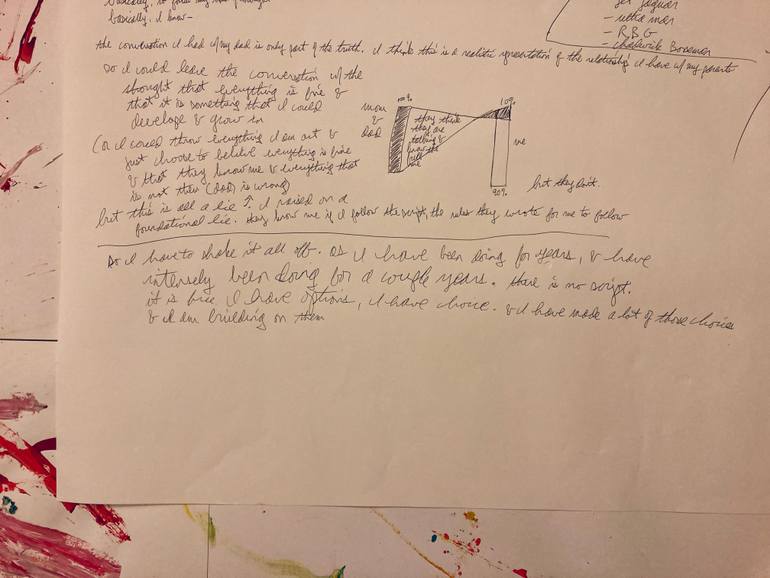 basically, I know-
- ultra man
- R.B.G
- chadwick Boseman
the conversation I had w/ my dad is only part of the truth. I think this is a realistic representation of the relationship I have w/ my parents
So I could leave the conversation w/ the
thought that everything is fine &
that it is something that I could
develope & grow in
mom
&
dad
100%
they think
they are
talking &
know the
full
me
10%
me
90%
but they don't.
(or I could throw everything I am out &
just choose to believe everything is fine
& that they know me & everything that
is not them (DAD) is wrong)
but this is all a lie ↑. I raised on a
foundational lie. they know me if I follow the script, the rules they wrote for me to follow
So I have to shake it all off. as I have been doing for years, & have
intensely been doing for a couple years. there is no script.
it is fine I have options, I have choice. & I have made a lot of those choices
& I am building on them